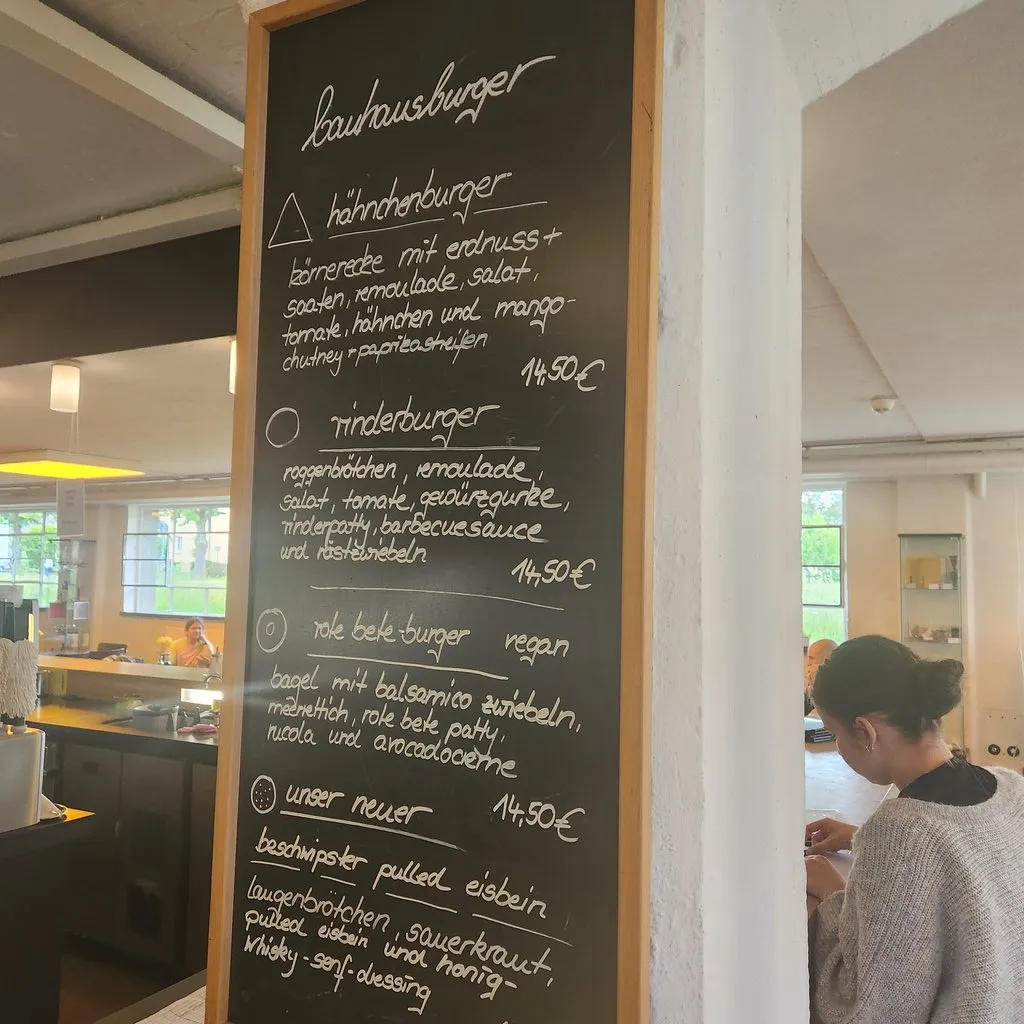 bauhausburger
hähnchenburger
körnerecke mit erdnuss+
saaten, remoulade, salat,
tomate, hähnchen und mango-
chutney + paprikastreifen
14,50€
rinderburger
roggenbrötchen, remoulade,
salat, tomate, gewürzgurke,
rinderpatty, barbecuesauce
und röstzwiebeln
14,50€
rote bete-burger vegan
bagel mit balsamico zwiebeln,
meerrettich, rote bete patty,
rucola und avocadocreme
14,50€
unser neuer
beschwipster pulled eisbein
laugenbrötchen, sauerkraut,
pulled eisbein und honig-
whisky-senf-dressing